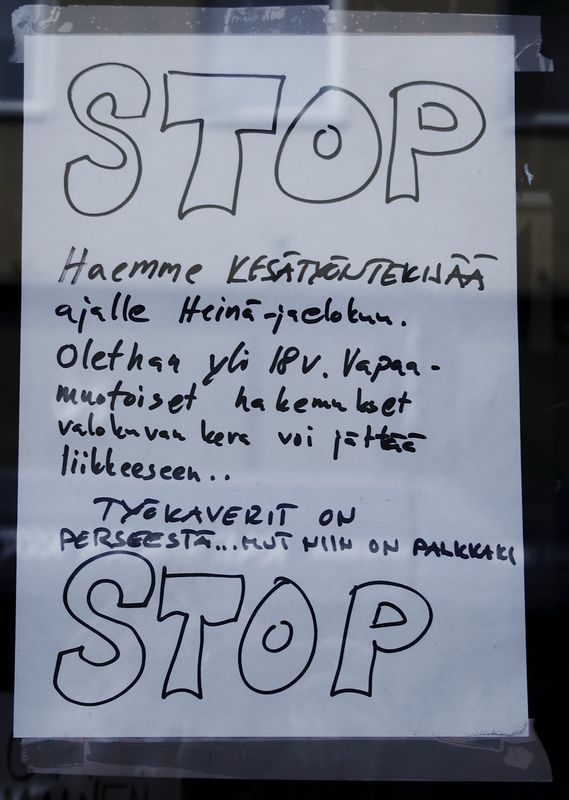 STOP
Haemme KESÄTYÖNTEKIJÄÄ
ajalle Heinä-jaelokuu.
Olethan yli 18v. Vapaa-
muotoiset hakemukset
valokuvan kera voi jättää
liikkeeseen..
TYÖKAVERIT ON
PERSEESTÄ...MUT NIIN ON PALKKAKI
STOP